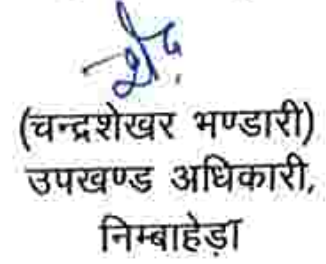 (चन्द्रशेखर भण्डारी)
उपखण्ड अधिकारी,
निम्बाहेड़ा